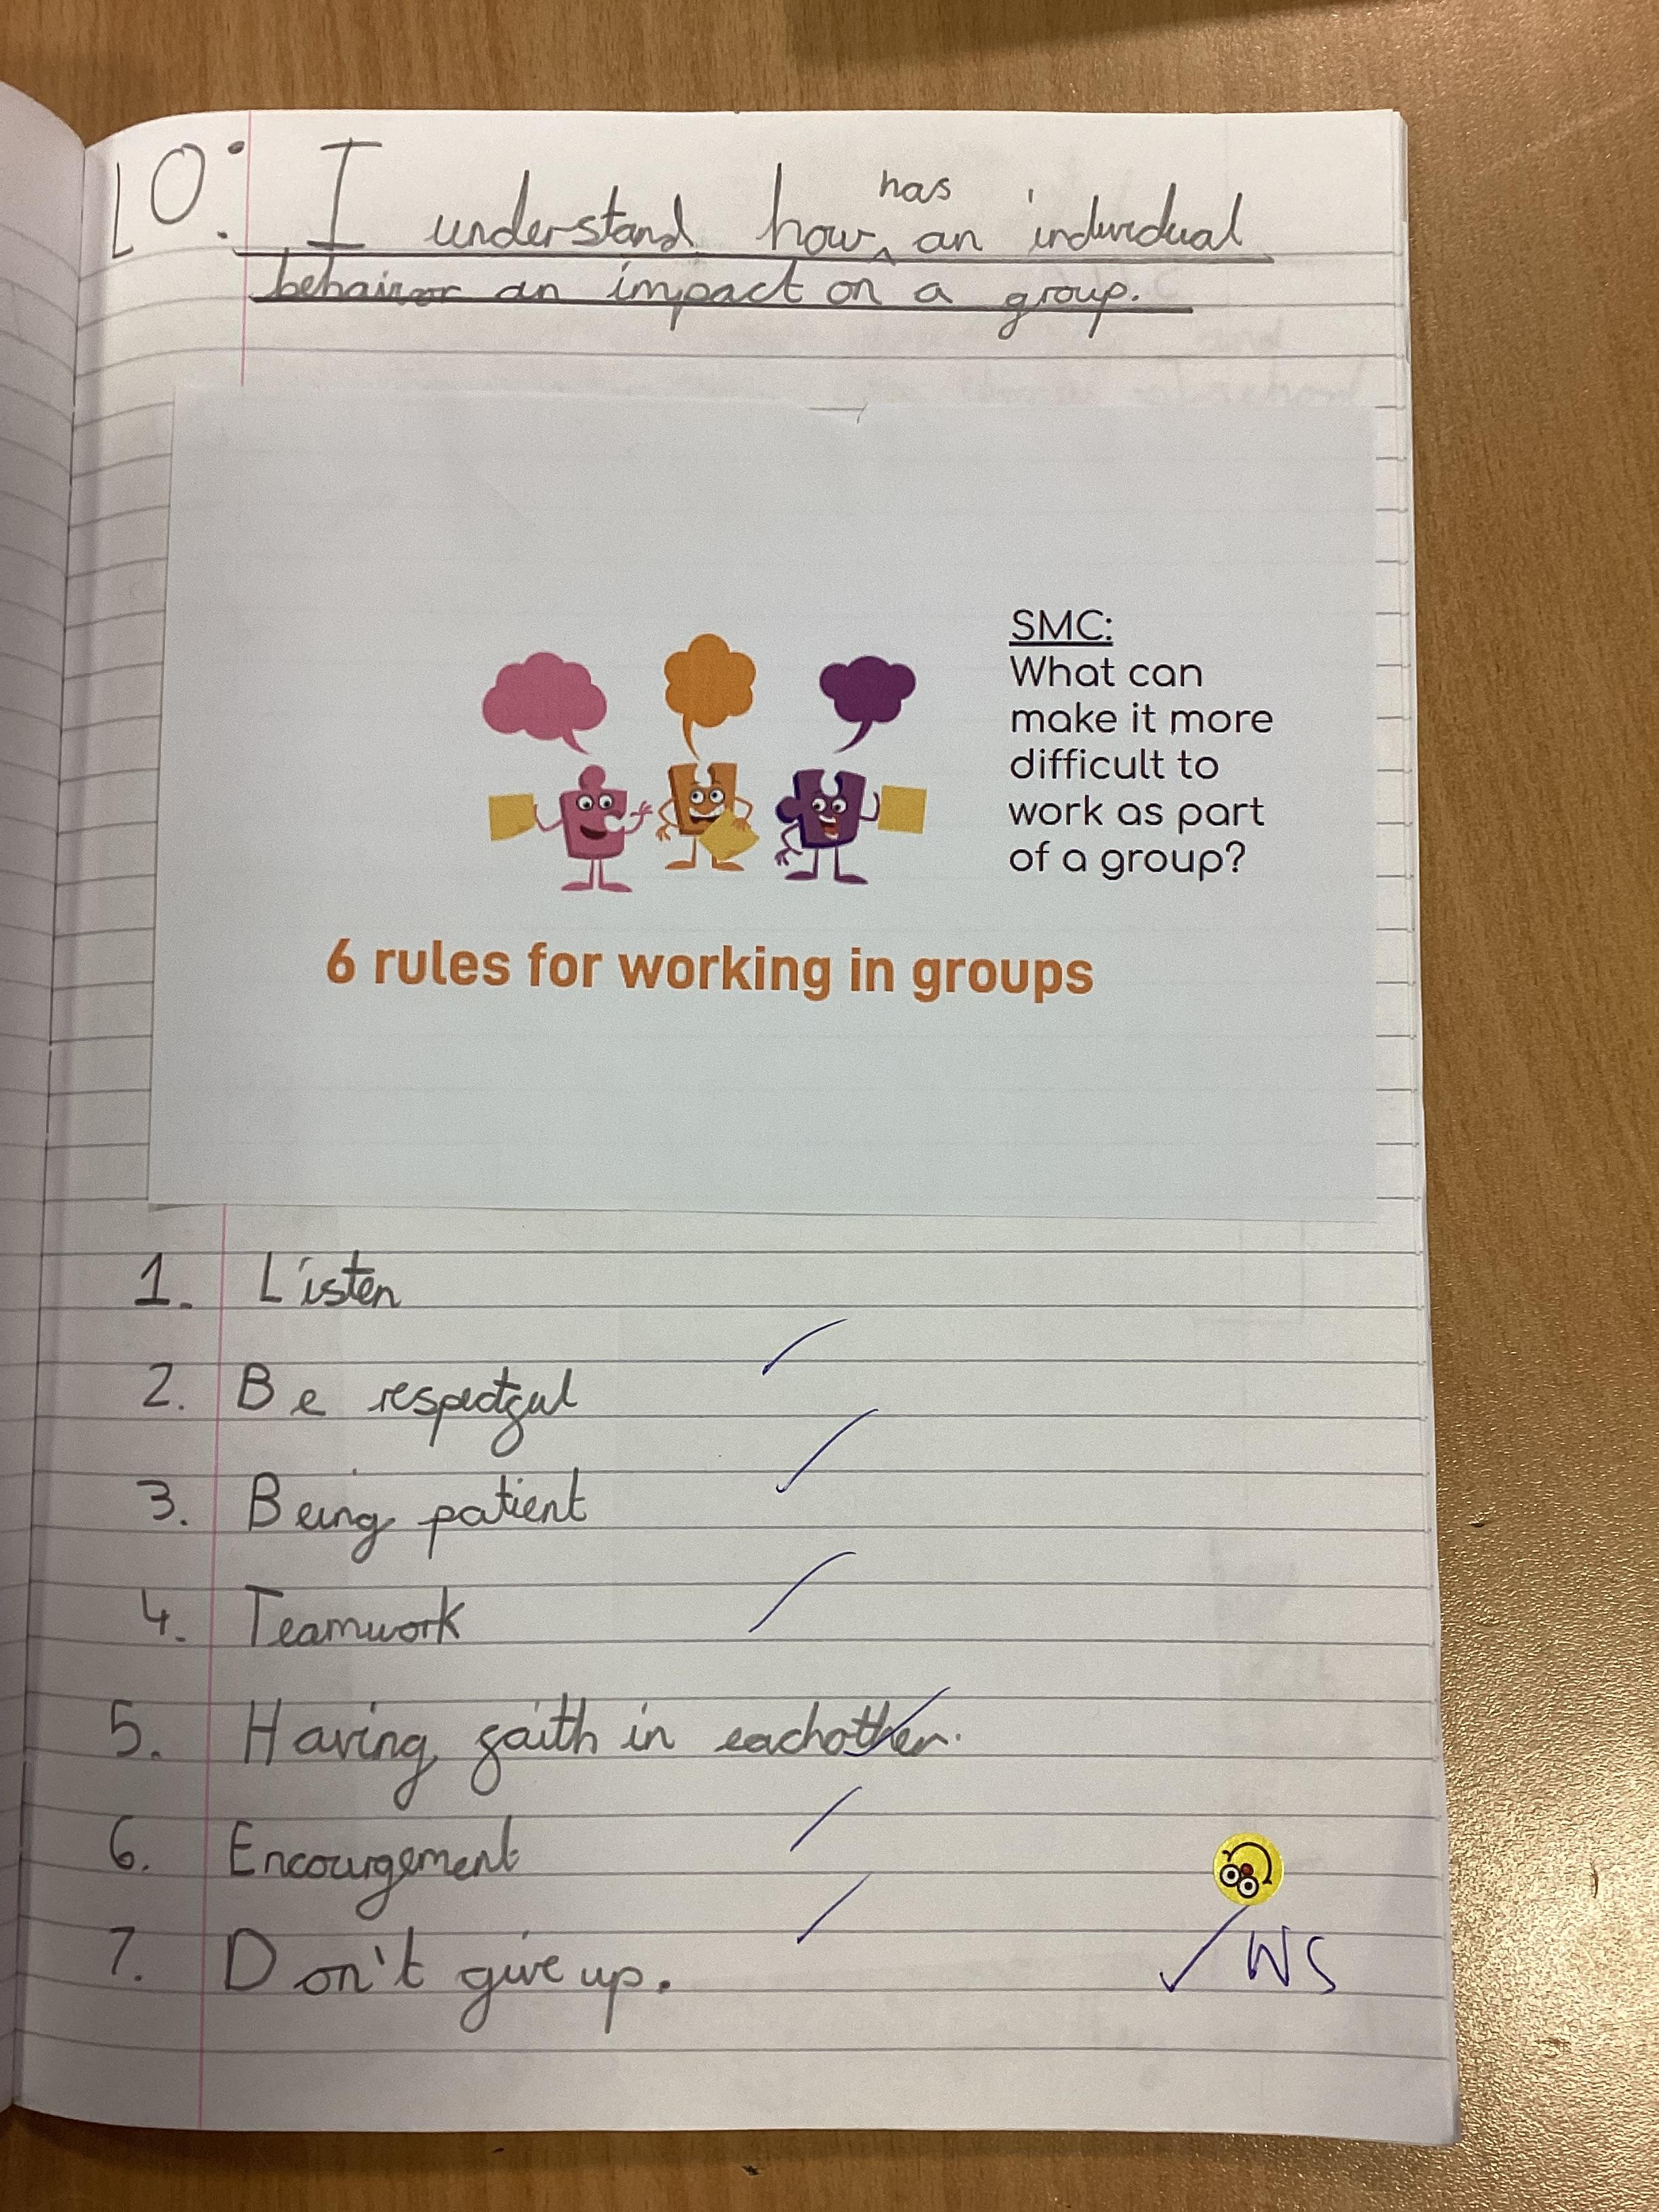 LO: I understand how has an individual
behairor an impact on a group.
SMC:
What can
make it more
difficult to
work as part
of a group?
6 rules for working in groups
1. Listen
2. Be respectful
3. Being patient
4. Teamwork
5. Having faith in eachother.
6. Encourgement
7. Don't give up.
WS